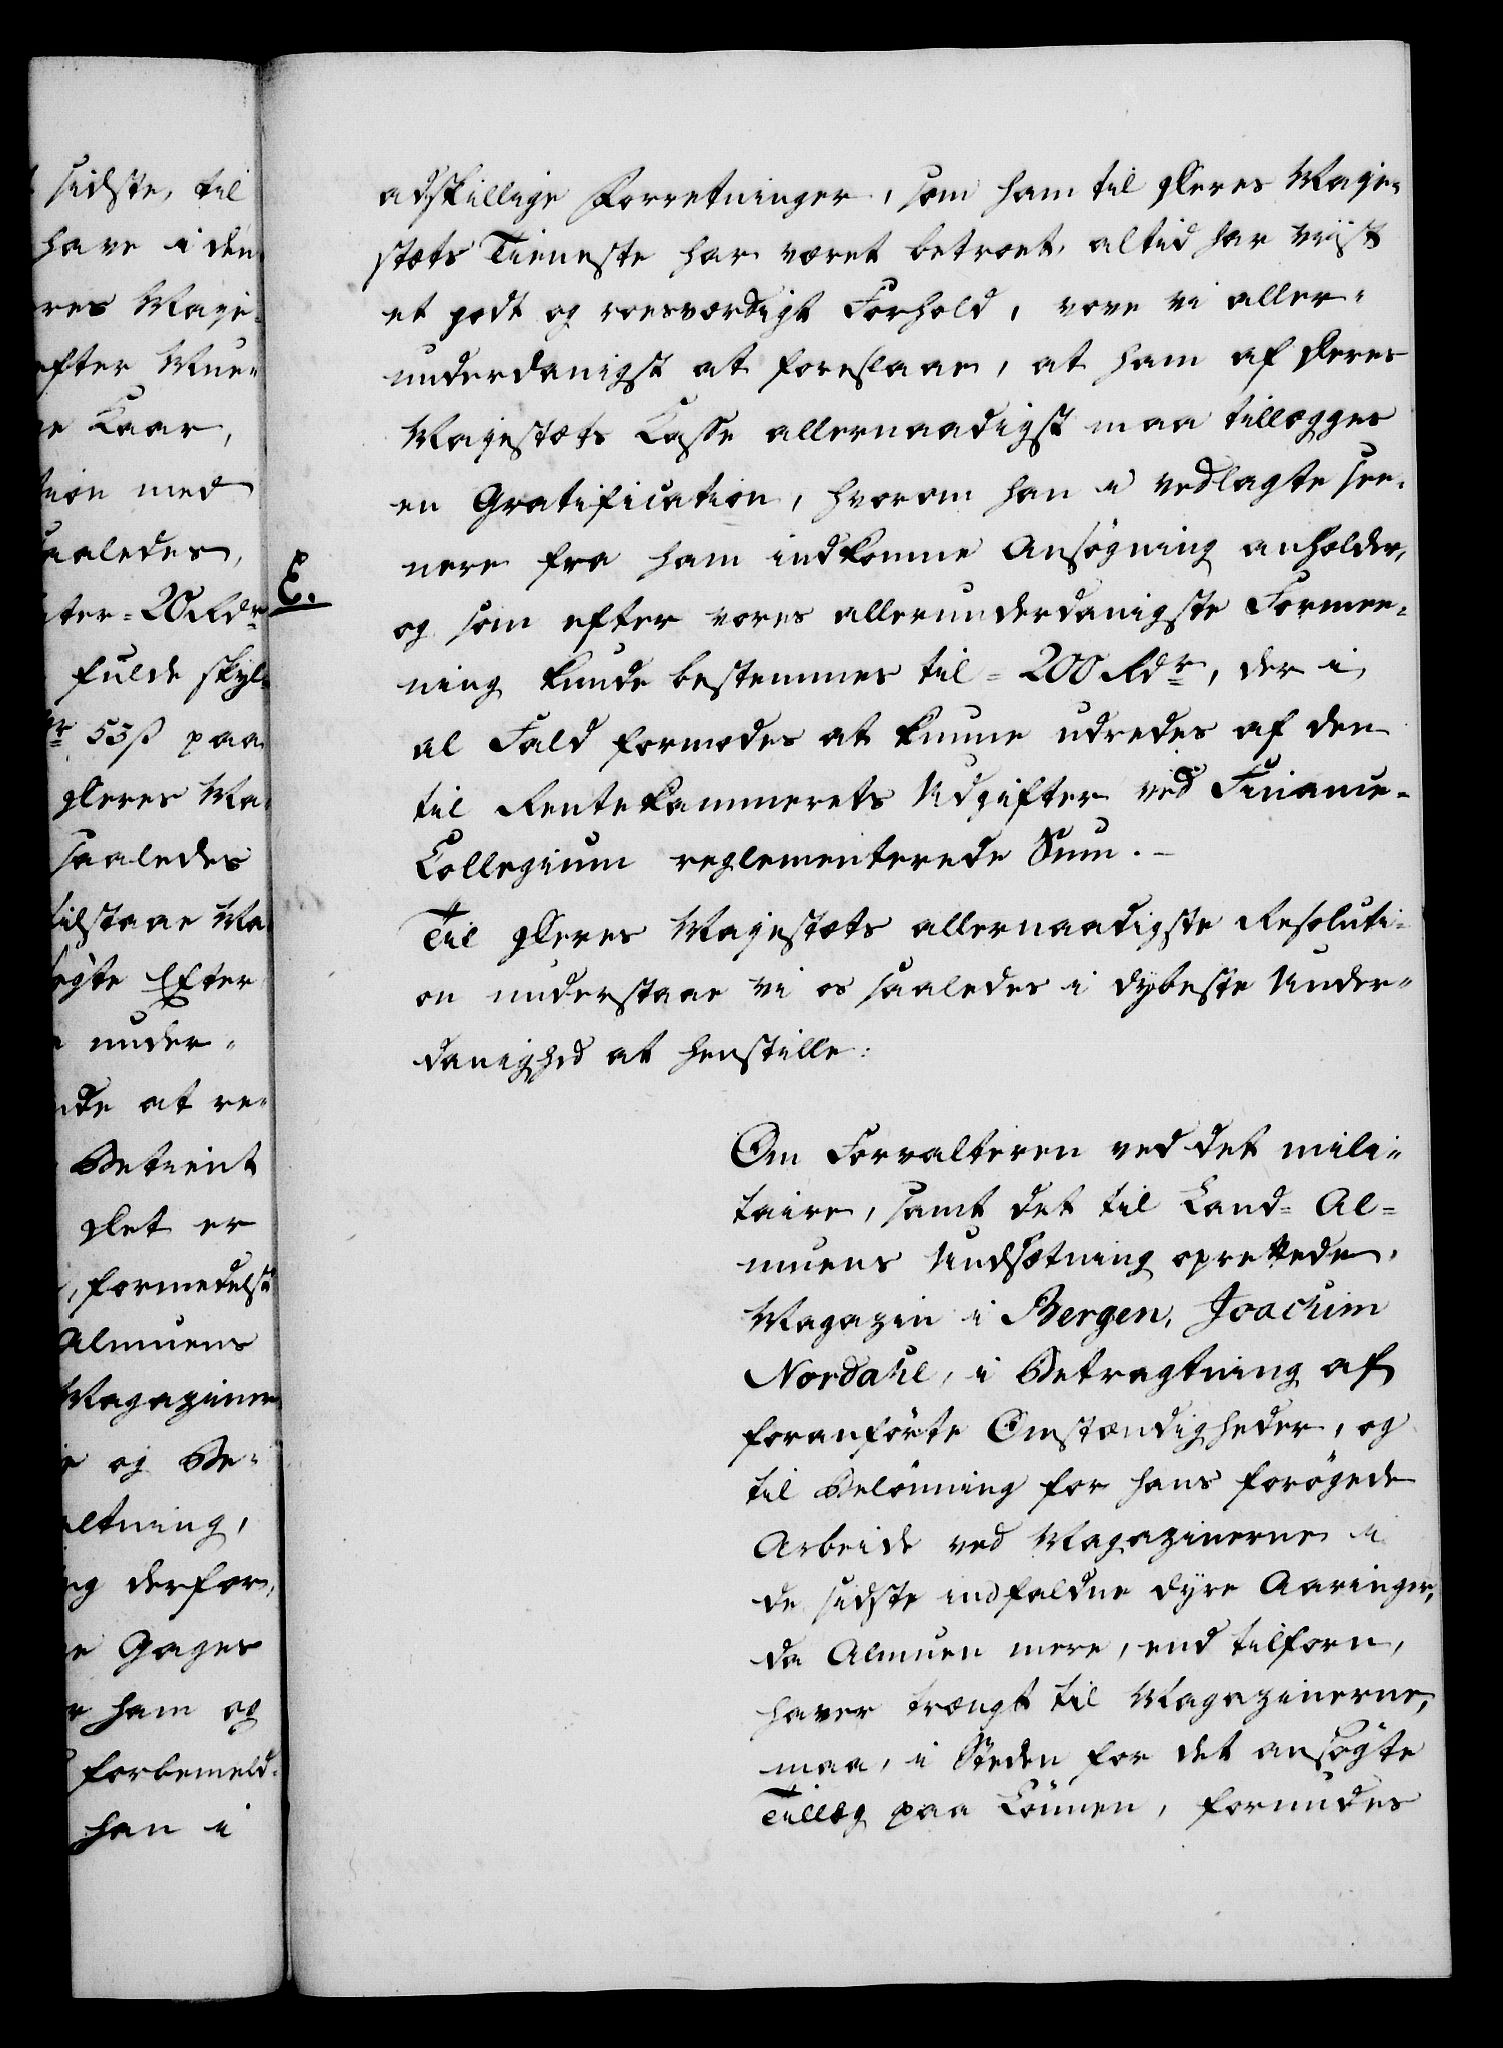 sidste, til
have i den
res Maje-
efter Mue-
e Kaar,
tion med
aaledes,
ter = 20 Rdr
fulde skyl-
53 ß paa
Deres Ma-
saaledes
tilstaae Ma-
søgte Efter
under-
de at re-
Betient
Det er
, formedelst
Almuens
Magaziner
e og Be-
altning,
ng derfor,
e Gages
ham og
forbemeld-
han i
adskillige Forretninger, som ham til Deres Maje-
stæts Tieneste har været betroet, altid har viist
et godt og roesværdigt Forhold, vove vi aller-
underdanigst at foreslaae, at ham af Deres
Majestæts Casse allernaadigst maa tillægges
en Gratification, hvorom han i vedlagte see-
E.
nere fra ham indkomne Ansøgning anholder,
og som efter vores allerunderdanigste Formee-
ning kunde bestemmes til = 200 Rdr, der i
al Fald formodes at kunne udredes af den
til Rentekammerets Udgifter ved Finance-
Collegium reglementerede Sum. -
Til Deres Majestæts allernaadigste Resoluti-
on understaae vi os saaledes i dybeste Under-
danighed at henstille:
Om Forvalteren ved det mili-
taire, samt det til Land-Al-
muens Undsætning oprettede
Magazin i Bergen, Joachim
Nordahl, i Betragtning af
foranførte Omstændigheder, og
til Belønning for hans forøgede
Arbeide ved Magazinerne i
de sidste indfaldne dyre Aaringer,
da Almuen mere, end tilforn,
haver trængt til Magazinerne,
maa, i Steden for det ansøgte
Tillæg paa Lønnen, forundes